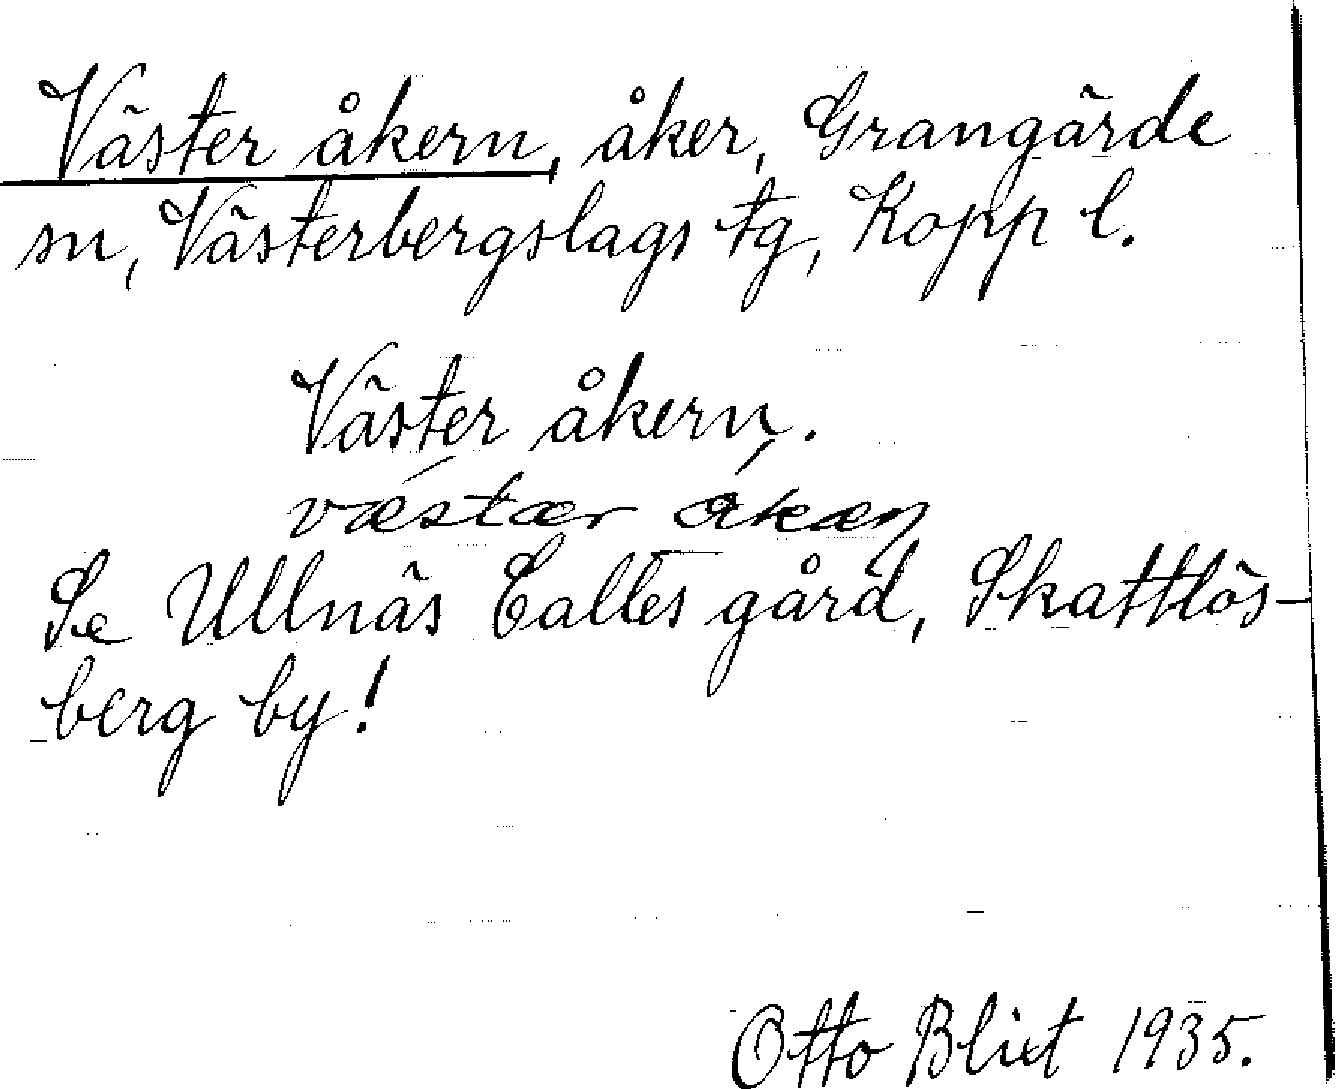 Väster åkern, åker, Grangärde
sn, Västerbergslags tg, Kopp l.
Väster åkern.
væstær åkæn
Se Ullnäs Calles gård, Skattlös-
berg by!
Otto Blixt 1935.